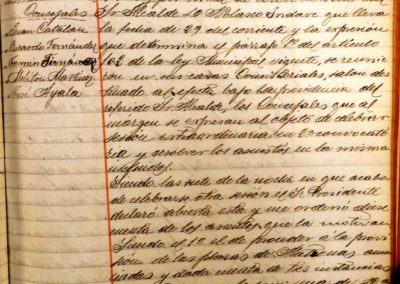 Concejales
Juan Catalan
Ricardo Fernández
Román Fernández
Meliton Martinez
José Ayala
Sr Alcalde D. Blasco Indave que lleva
la fecha de 29 del corriente y la expresion
que determina el parrafo 1º del articulo
102 de la ley Municipal vigente, se reunie
ron en sus casas Consistoriales, salon des
tinado al efecto, bajo la presidencia del
referido Sr Alcalde, los Concejales que al
margen se expresan al objeto de celebrar
sesion extraordinaria en 2ª convocato
ria y resolver los asuntos en la misma
incluidos
Siendo las siete de la noche en que acaba
de celebrarse otra sesion el Sr Presidente
declaró abierta esta y me ordenó diese
cuenta de los asuntos que la motivan
Siendo el 1º el de proceder á la provi
sion de las plazas de
y dada cuenta de las instancias